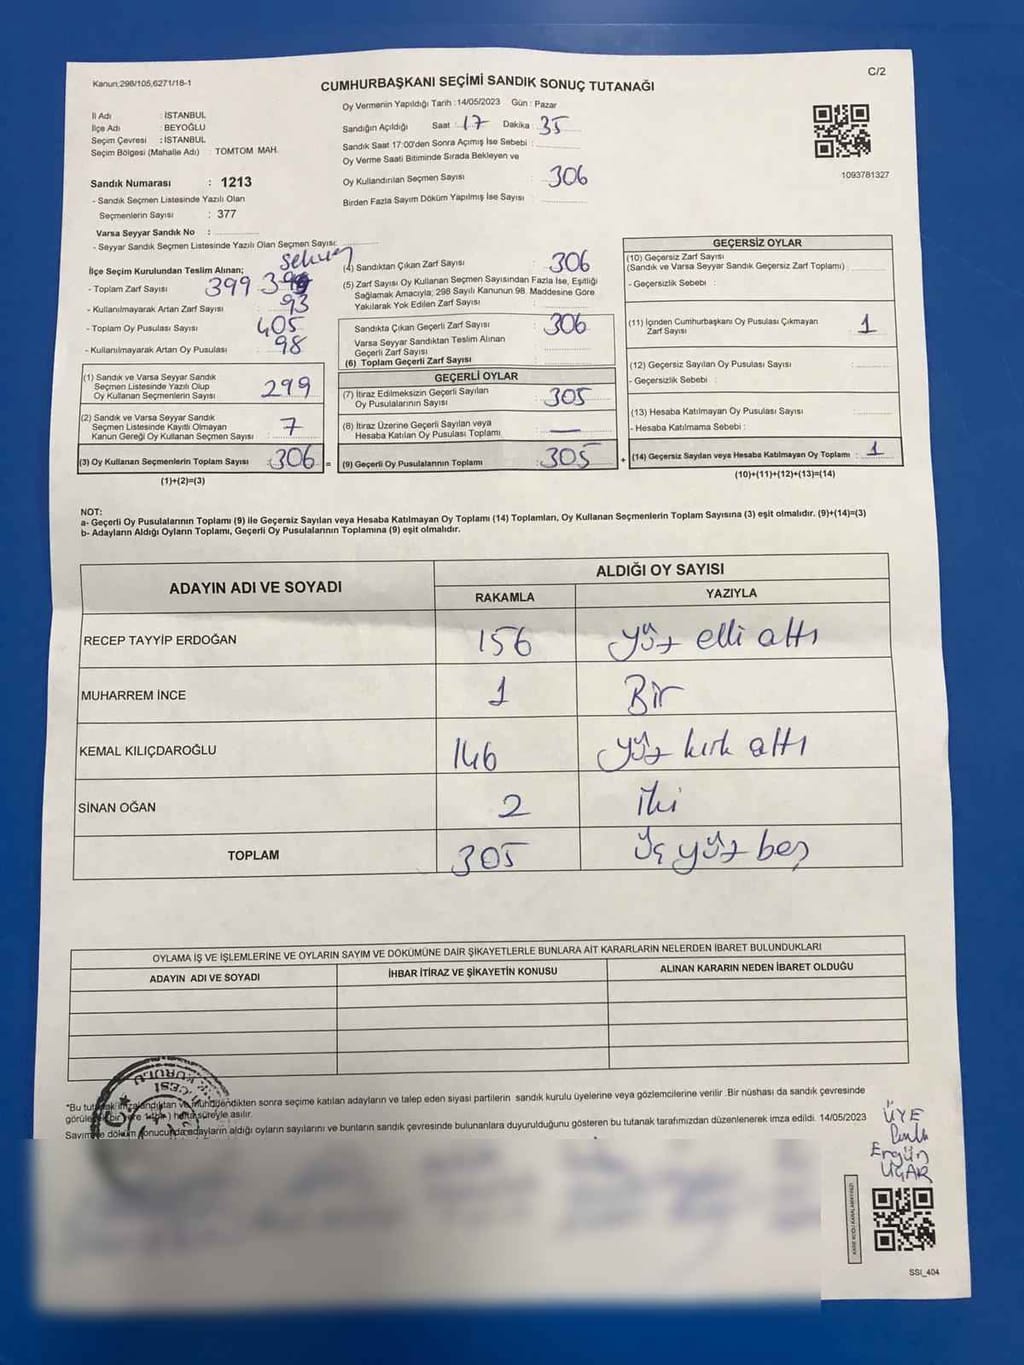 Kanun;298/105,6271/18-1
C/2
CUMHURBAŞKANI SEÇİMİ SANDIK SONUÇ TUTANAĞI
İl Adı : İSTANBUL
İlçe Adı : BEYOĞLU
Seçim Çevresi : İSTANBUL
Seçim Bölgesi (Mahalle Adı) : TOMTOM MAH.
Sandık Numarası : 1213
- Sandık Seçmen Listesinde Yazılı Olan
Seçmenlerin Sayısı : 377
Varsa Seyyar Sandık No :
- Seyyar Sandık Seçmen Listesinde Yazılı Olan Seçmen Sayısı:
Oy Vermenin Yapıldığı Tarih :14/05/2023 Gün : Pazar
Sandığın Açıldığı Saat : 17 Dakika : 35
Sandık Saat 17:00'den Sonra Açımış İse Sebebi :
Oy Verme Saati Bitiminde Sırada Bekleyen ve
Oy Kullandırılan Seçmen Sayısı : 306
Birden Fazla Sayım Döküm Yapılmış İse Sayısı :
1093781327
İlçe Seçim Kurulundan Teslim Alınan;
- Toplam Zarf Sayısı : 399
- Kullanılmayarak Artan Zarf Sayısı : 93
- Toplam Oy Pusulası Sayısı : 405
- Kullanılmayarak Artan Oy Pusulası : 98
(1) Sandık ve Varsa Seyyar Sandık
Seçmen Listesinde Yazılı Olup
Oy Kullanan Seçmenlerin Sayısı : 299
(2) Sandık ve Varsa Seyyar Sandık
Seçmen Listesinde Kayıtlı Olmayan
Kanun Gereği Oy Kullanan Seçmen Sayısı : 7
(3) Oy Kullanan Seçmenlerin Toplam Sayısı : 306 =
(1)+(2)=(3)
(4) Sandıktan Çıkan Zarf Sayısı : 306
(5) Zarf Sayısı Oy Kullanan Seçmen Sayısından Fazla İse, Eşitliği
Sağlamak Amacıyla; 298 Sayılı Kanunun 98. Maddesine Göre
Yakılarak Yok Edilen Zarf Sayısı :
Sandıkta Çıkan Geçerli Zarf Sayısı : 306
Varsa Seyyar Sandıktan Teslim Alınan
Geçerli Zarf Sayısı
(6) Toplam Geçerli Zarf Sayısı :
GEÇERLİ OYLAR
(7) İtiraz Edilmeksizin Geçerli Sayılan
Oy Pusulalarının Sayısı : 305
(8) İtiraz Üzerine Geçerli Sayılan veya
Hesaba Katılan Oy Pusulası Toplamı : —
(9) Geçerli Oy Pusulalarının Toplamı : 305 +
GEÇERSİZ OYLAR
(10) Geçersiz Zarf Sayısı
(Sandık ve Varsa Seyyar Sandık Geçersiz Zarf Toplamı) :
- Geçersizlik Sebebi :
(11) İçinden Cumhurbaşkanı Oy Pusulası Çıkmayan
Zarf Sayısı : 1
(12) Geçersiz Sayılan Oy Pusulası Sayısı :
- Geçersizlik Sebebi :
(13) Hesaba Katılmayan Oy Pusulası Sayısı :
- Hesaba Katılmama Sebebi :
(14) Geçersiz Sayılan veya Hesaba Katılmayan Oy Toplamı : 1
(10)+(11)+(12)+(13)=(14)
NOT:
a- Geçerli Oy Pusulalarının Toplamı (9) ile Geçersiz Sayılan veya Hesaba Katılmayan Oy Toplamı (14) Toplamları, Oy Kullanan Seçmenlerin Toplam Sayısına (3) eşit olmalıdır. (9)+(14)=(3)
b- Adayların Aldığı Oyların Toplamı, Geçerli Oy Pusulalarının Toplamına (9) eşit olmalıdır.
ADAYIN ADI VE SOYADI
ALDIĞI OY SAYISI
RAKAMLA YAZIYLA
RECEP TAYYİP ERDOĞAN 156 yüz elli altı
MUHARREM İNCE 1 Bir
KEMAL KILIÇDAROĞLU 146 yüz kırk altı
SİNAN OĞAN 2 iki
TOPLAM 305 üç yüz beş
OYLAMA İŞ VE İŞLEMLERİNE VE OYLARIN SAYIM VE DÖKÜMÜNE DAİR ŞİKAYETLERLE BUNLARA AİT KARARLARIN NELERDEN İBARET BULUNDUKLARI
ADAYIN ADI VE SOYADI İHBAR İTİRAZ VE ŞİKAYETİN KONUSU ALINAN KARARIN NEDEN İBARET OLDUĞU
*Bu sonra seçime katılan adayların ve talep eden siyasi partilerin sandık kurulu üyelerine veya gözlemcilerine verilir. Bir nüshası da sandık çevresinde
süreyle asılır.
adayların aldığı oyların sayılarını ve bunların sandık çevresinde bulunanlara duyurulduğunu gösteren bu tutanak tarafımızdan düzenlenerek imza edildi. 14/05/2023
ÜYE
Ergün
UÇAR
SSI_404